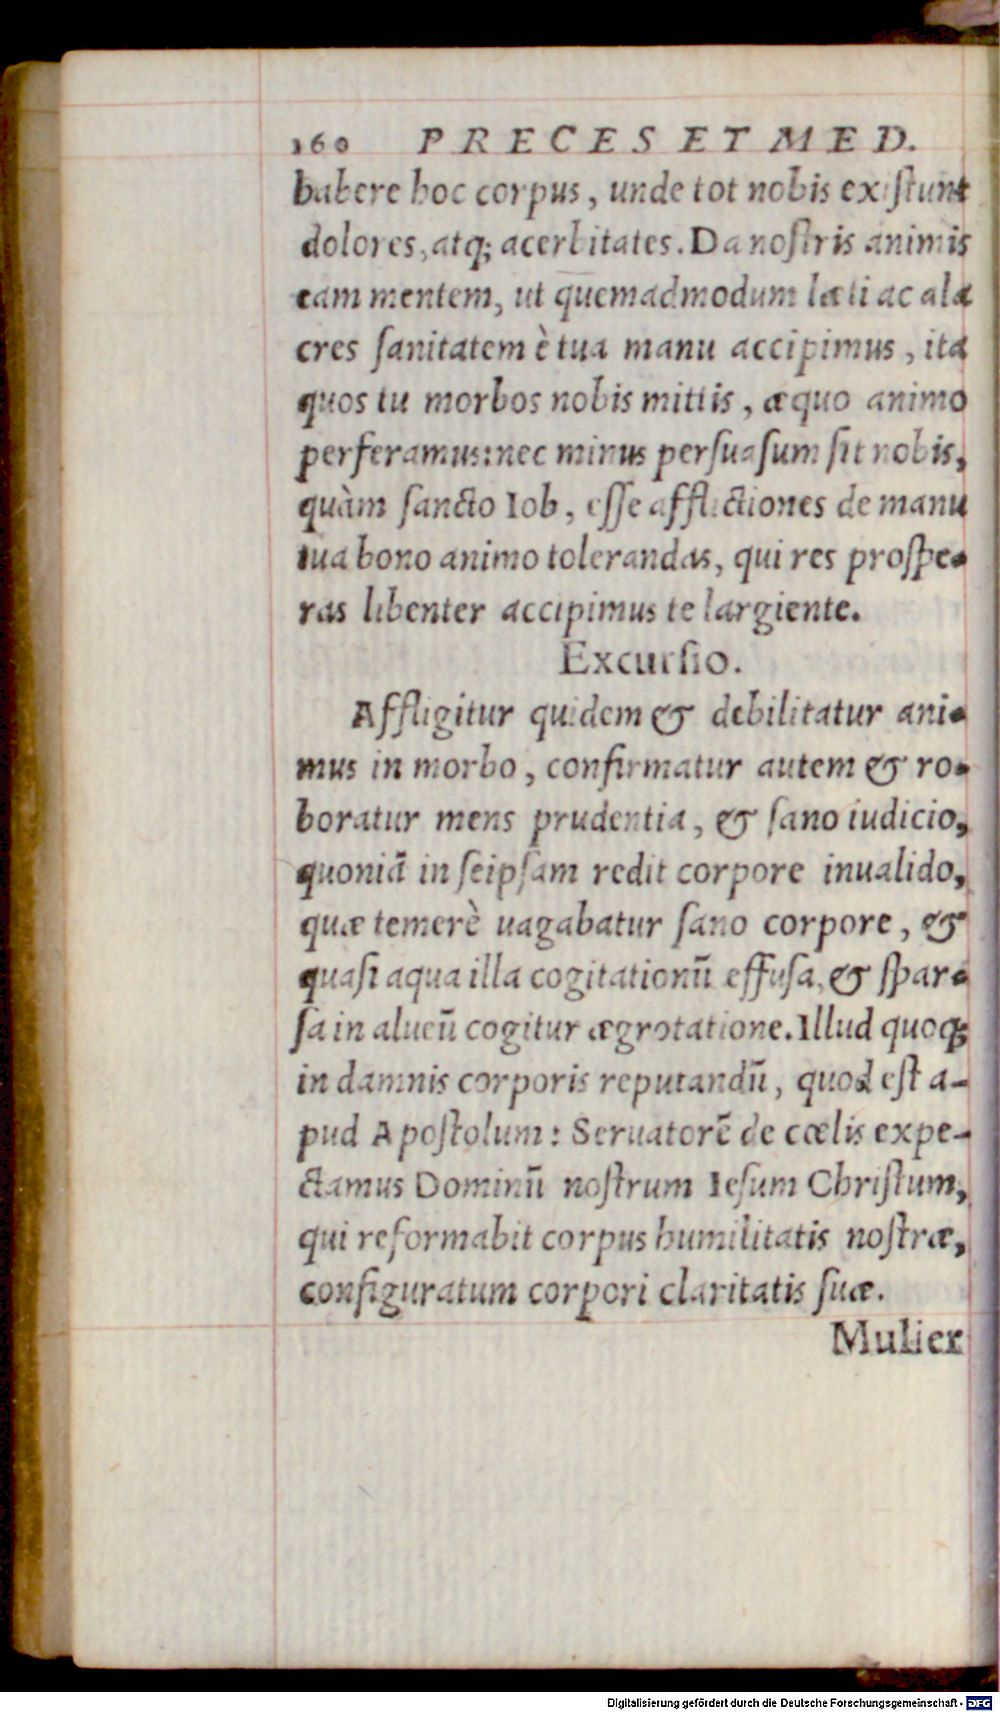 160 PRECES ET MED.
habere hoc corpus, unde tot nobis existunt
dolores, atq; acerbitates. Da nostris animis
eam mentem, ut quemadmodum læti ac ala
cres sanitatem è tua manu accipimus, ita
quos tu morbos nobis mittis, æquo animo
perferamus: nec minus persuasum sit nobis,
quàm sancto Iob, esse afflictiones de manu
tua bono animo tolerandas, qui res prospe-
ras libenter accipimus te largiente.
Excursio.
Affligitur quidem & debilitatur ani-
mus in morbo, confirmatur autem & ro-
boratur mens prudentia, & sano iudicio,
quoniã in seipsam redit corpore inualido,
quæ temerè uagabatur sano corpore, &
quasi aqua illa cogitationũ effusa, & spar-
sa in alueũ cogitur ægrotatione. Illud quoq;
in damnis corporis reputandũ, quod est a-
pud Apostolum: Seruatorẽ de cœlis expe-
ctamus Dominũ nostrum Iesum Christum,
qui reformabit corpus humilitatis nostræ,
configuratum corpori claritatis suæ.
Mulier
Digitalisierung gefördert durch die Deutsche Forschungsgemeinschaft - DFG